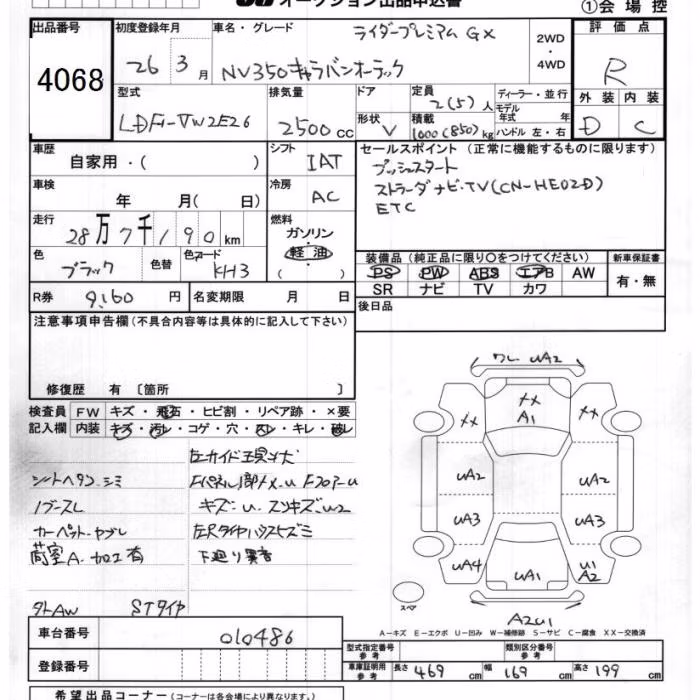 オークション出品申込書
①会場控
出品番号 4068
初度登録年月 26 3月
車名・グレード ライダープレミアム GX
NV350キャラバン
2WD・4WD
評価点 R
外装 D 内装 C
型式 LDF-VW2E26
排気量 2500cc
ドア 形状 V
定員 2(5)人
積載 1000(850)kg
ディーラー・並行
モデル年式 年
ハンドル 左・右
車歴 自家用・( )
シフト IAT
セールスポイント (正常に機能するものに限ります)
プッシュスタート
ストラーダナビ・TV(CN-HE02D)
ETC
車検 年 月( 日)
冷房 AC
走行 28万7千190km
燃料 ガソリン・軽油・( )
色 ブラック 色替
色コード KH3
装備品 (純正品に限り○をつけてください)
PS PW ABS エアB AW
SR ナビ TV カワ
新車保証書 有・無
R券 9,160円
名変期限 月 日
後日品
注意事項申告欄 (不具合内容等は具体的に記入して下さい)
修復歴 有 〔箇所 〕
検査員記入欄
FW キズ・飛石・ヒビ割・リペア跡・×要
内装 キズ・汚レ・コゲ・穴・スレ・キレ・破レ
シートヘタリ・シミ
カーペット・ヤブレ
荷室A・加工有
タトAW STタイヤ
キズ・U・スリキズ・U2
下廻り異音
ワレ UA2
XX
XX A1
XX
UA2
UA2
UA3
UA3
UA4
UA1
U1 A2
A2U1
スペア
A−キズ E−エクボ U−凹み W−補修跡 S−サビ C−腐食 XX−交換済
車台番号 010486
登録番号
型式指定番号 参考
類別区分番号 参考
車庫証明用 参考 長さ 469cm 幅 169cm 高さ 199cm
希望出品コーナー (コーナーは各会場により異なります。)